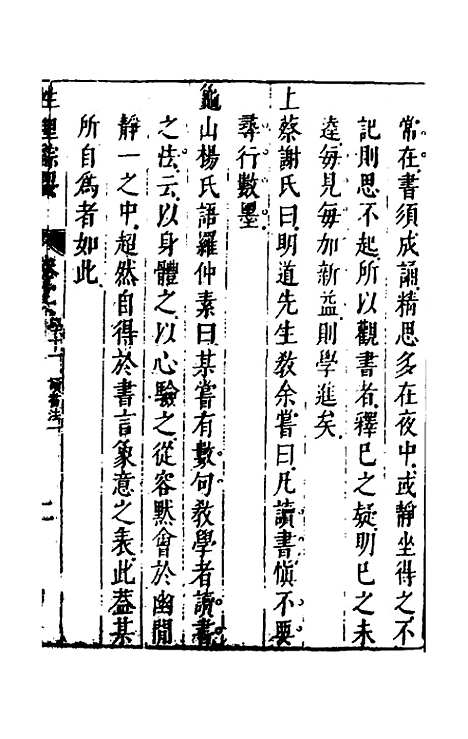 常在書須成誦精思多在夜中或靜坐得之不
記則思不起所以觀書者釋己之疑明己之未
達每見每加新益則學進矣
上蔡謝氏曰明道先生教余嘗曰凡讀書慎不要
尋行數墨
龜山楊氏語羅仲素曰某嘗有數句教學者讀書
之法云以身體之以心驗之從容默會於幽閒
靜一之中超然自得於書言象意之表此蓋某
所自為者如此
性理
學十一
讀書法
二